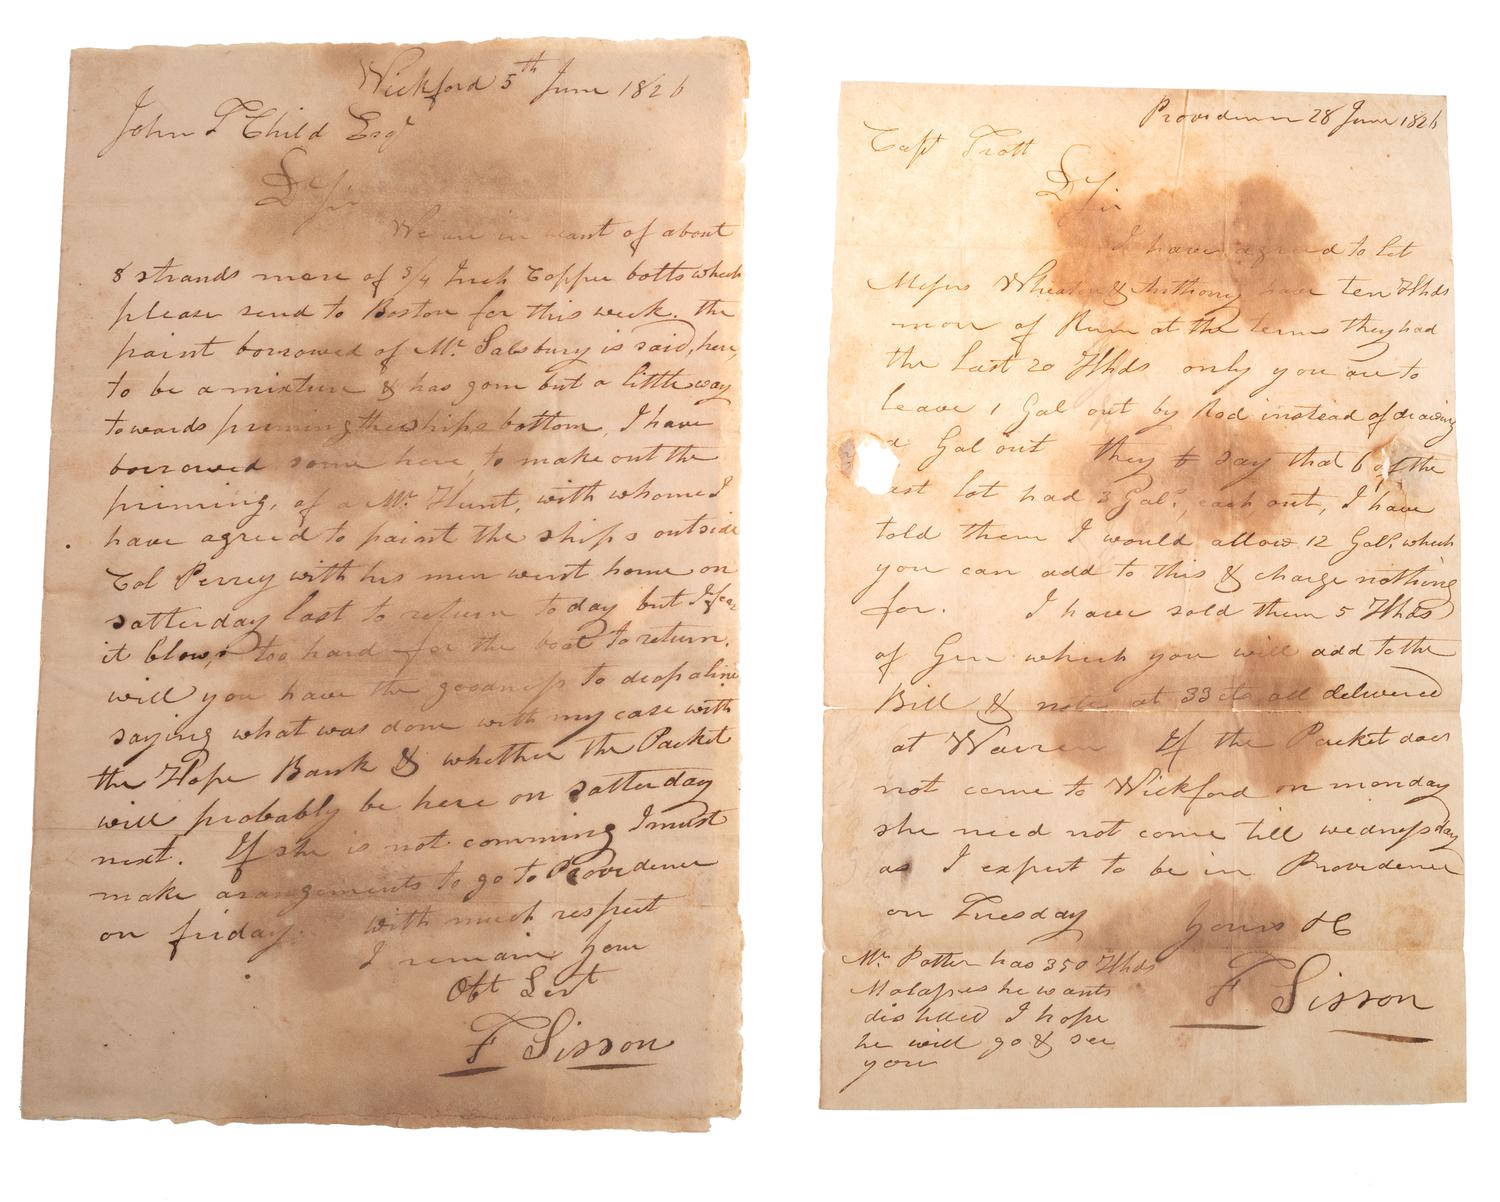 Wickford 5th June 1826
John T Child Esqr
D Sir
We are in want of about
8 strands more of 3/4 Inch Copper bolts which
please send to Boston for this week. the
paint borrowed of Mr. Salsbury is said, here,
to be a mixture & has gone but a little way
towards priming the ships bottom, I have
borrowed some here, to make out the
priming, of a Mr. Hunt, with whome I
have agreed to paint the ships outside
Col Perrey with his men went home on
satterday last to return today but I fear
it blows too hard for the boat to return.
will you have the goodness to drop a line
saying what was done with my case with
the Hope Bank & whether the Packet
will probably be here on satterday
next. If she is not comming I must
make arangements to go to Providence
on friday. with much respect
I remain your
Obt Sert
F Sisson
Providence 28 June 1826
Capt Trott
D Sir
I have agreed to let
Messrs Wheaton & Anthony have ten Hhds
more of Rum at the terms they had
the last 20 Hhds only you are to
leave 1 Gal out by Rod instead of drawing
a Gal out they say that 6 of the
last lot had 3 Gals, each out, I have
told them I would allow 12 Gals. which
you can add to this & charge nothing
for. I have sold them 5 Hhds
of Gin which you will add to the
Bill & note at 33 cts all delivered
at Warren If the Packet does
not come to Wickford on monday
she need not come till wednessday
as I expect to be in Providence
on Tuesday
Yours &C
F Sisson
Mr. Potter has 350 Hhds
Molasses he wants
distilled I hope
he will go & see
you